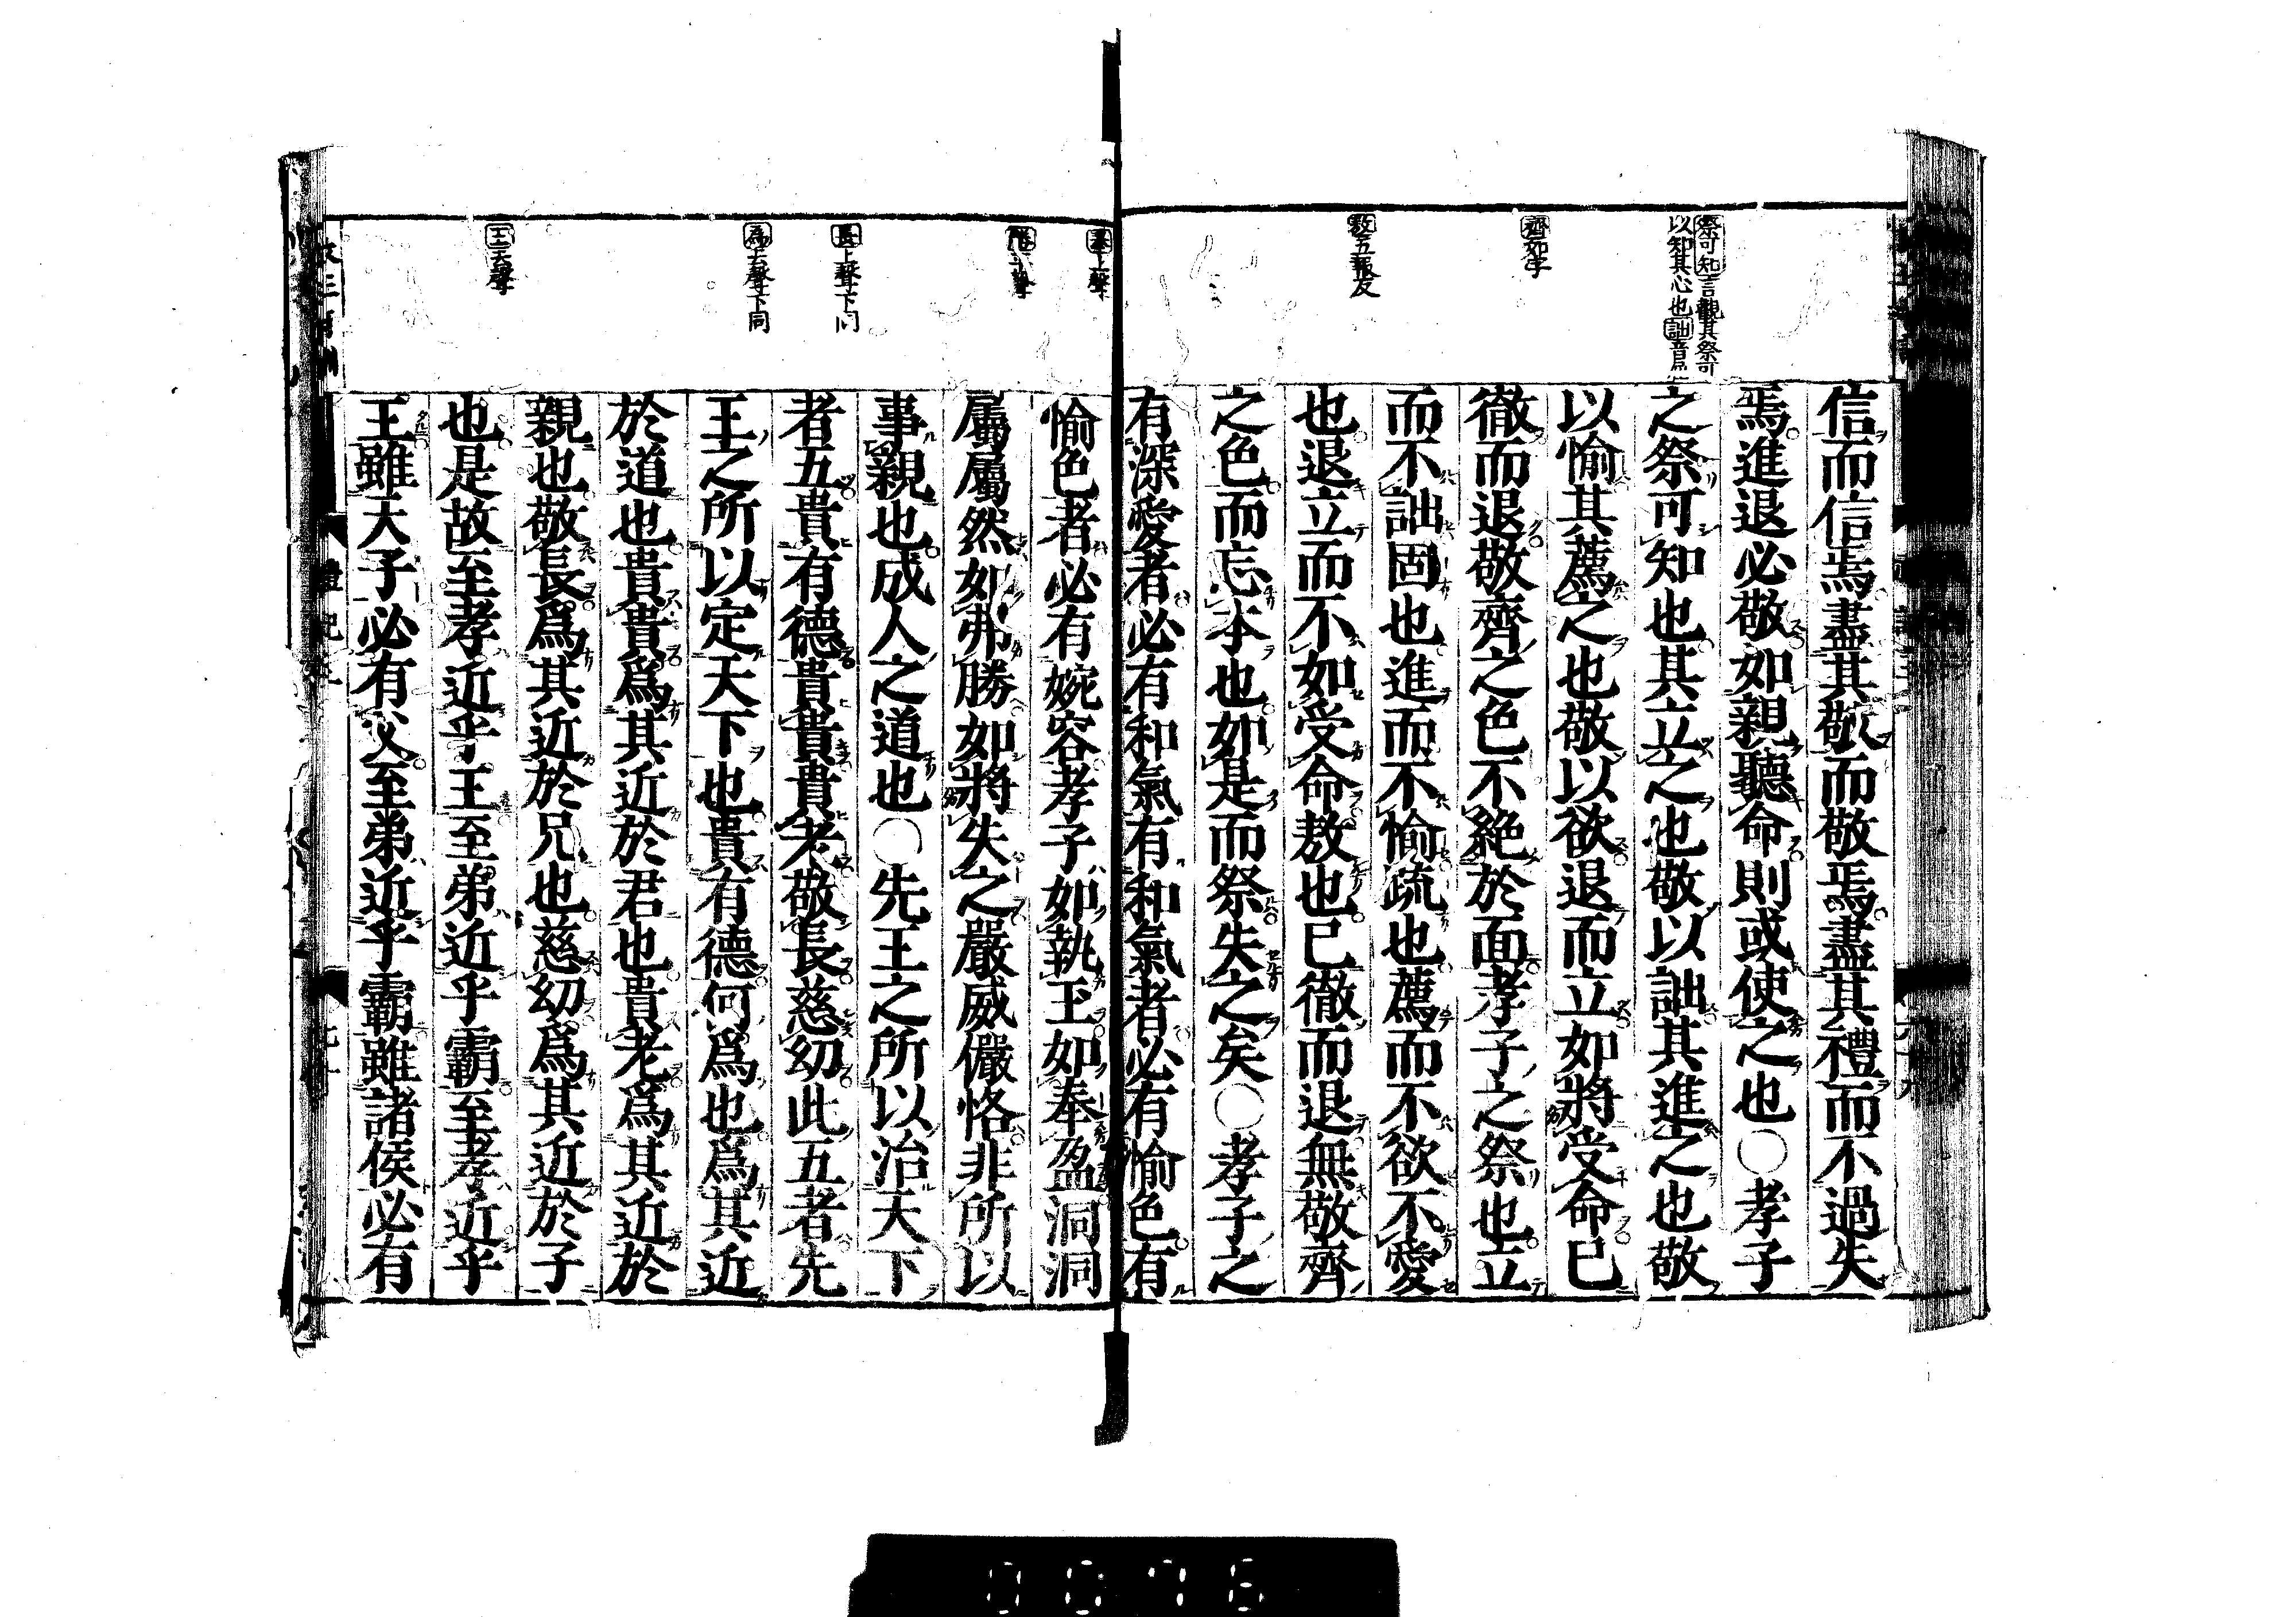 祭可知言觀其祭可
以知其心也詘音
齊如字
敖五報反
信而信焉盡其敬而敬焉盡其禮而不過失
焉進退必敬如親聽命則或使之也○孝子
之祭可知也其立之也敬以詘其進之也敬
以愉其薦之也敬以欲退而立如將受命已
徹而退敬齊之色不絶於面孝子之祭也立
而不詘固也進而不愉疏也薦而不欲不愛
也退立而不如受命敖也已徹而退無敬齊
之色而忘本也如是而祭失之矣○孝子之
有深愛者必有和氣有和氣者必有愉色有
上聲
長上聲下同
爲去聲下同
王去聲
愉色者必有婉容孝子如執玉如奉盈洞洞
屬屬然如弗勝如將失之嚴威儼恪非所以
事親也成人之道也○先王之所以治天下
者五貴有德貴貴貴老敬長慈幼此五者先
王之所以定天下也貴有德何爲也爲其近
於道也貴貴爲其近於君也貴老爲其近於
親也敬長爲其近於兄也慈幼爲其近於子
也是故至孝近乎王至弟近乎霸至孝近乎
王雖天子必有父至弟近乎霸雖諸侯必有
禮記
0076